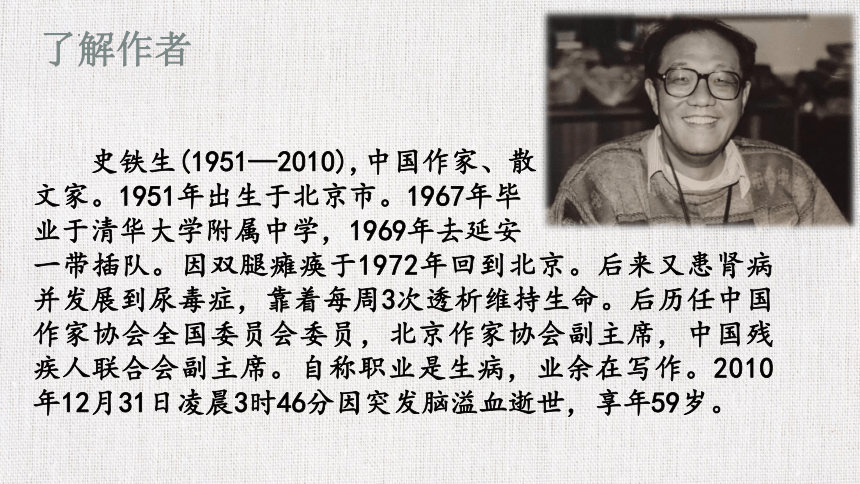 了解作者
史铁生(1951—2010),中国作家、散
文家。1951年出生于北京市。1967年毕
业于清华大学附属中学，1969年去延安
一带插队。因双腿瘫痪于1972年回到北京。后来又患肾病
并发展到尿毒症，靠着每周3次透析维持生命。后历任中国
作家协会全国委员会委员，北京作家协会副主席，中国残
疾人联合会副主席。自称职业是生病，业余在写作。2010
年12月31日凌晨3时46分因突发脑溢血逝世，享年59岁。